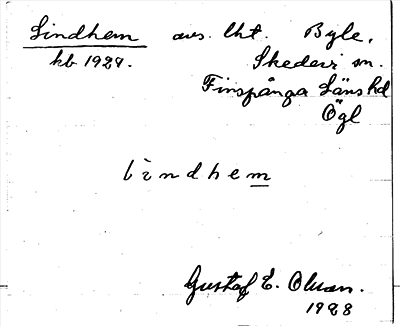 Lindhem avs. lht. Byle,
kb 1929. Skedevi sn.
Finspånga Läns hd
Ögl
lìndhem
Gustaf E. Olsson.
1928